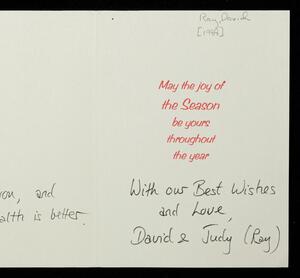 Ray, David
May the joy of
the Season
be yours
throughout
the year
and
is better.
With our Best Wishes
and Love,
David & Judy (Ray)